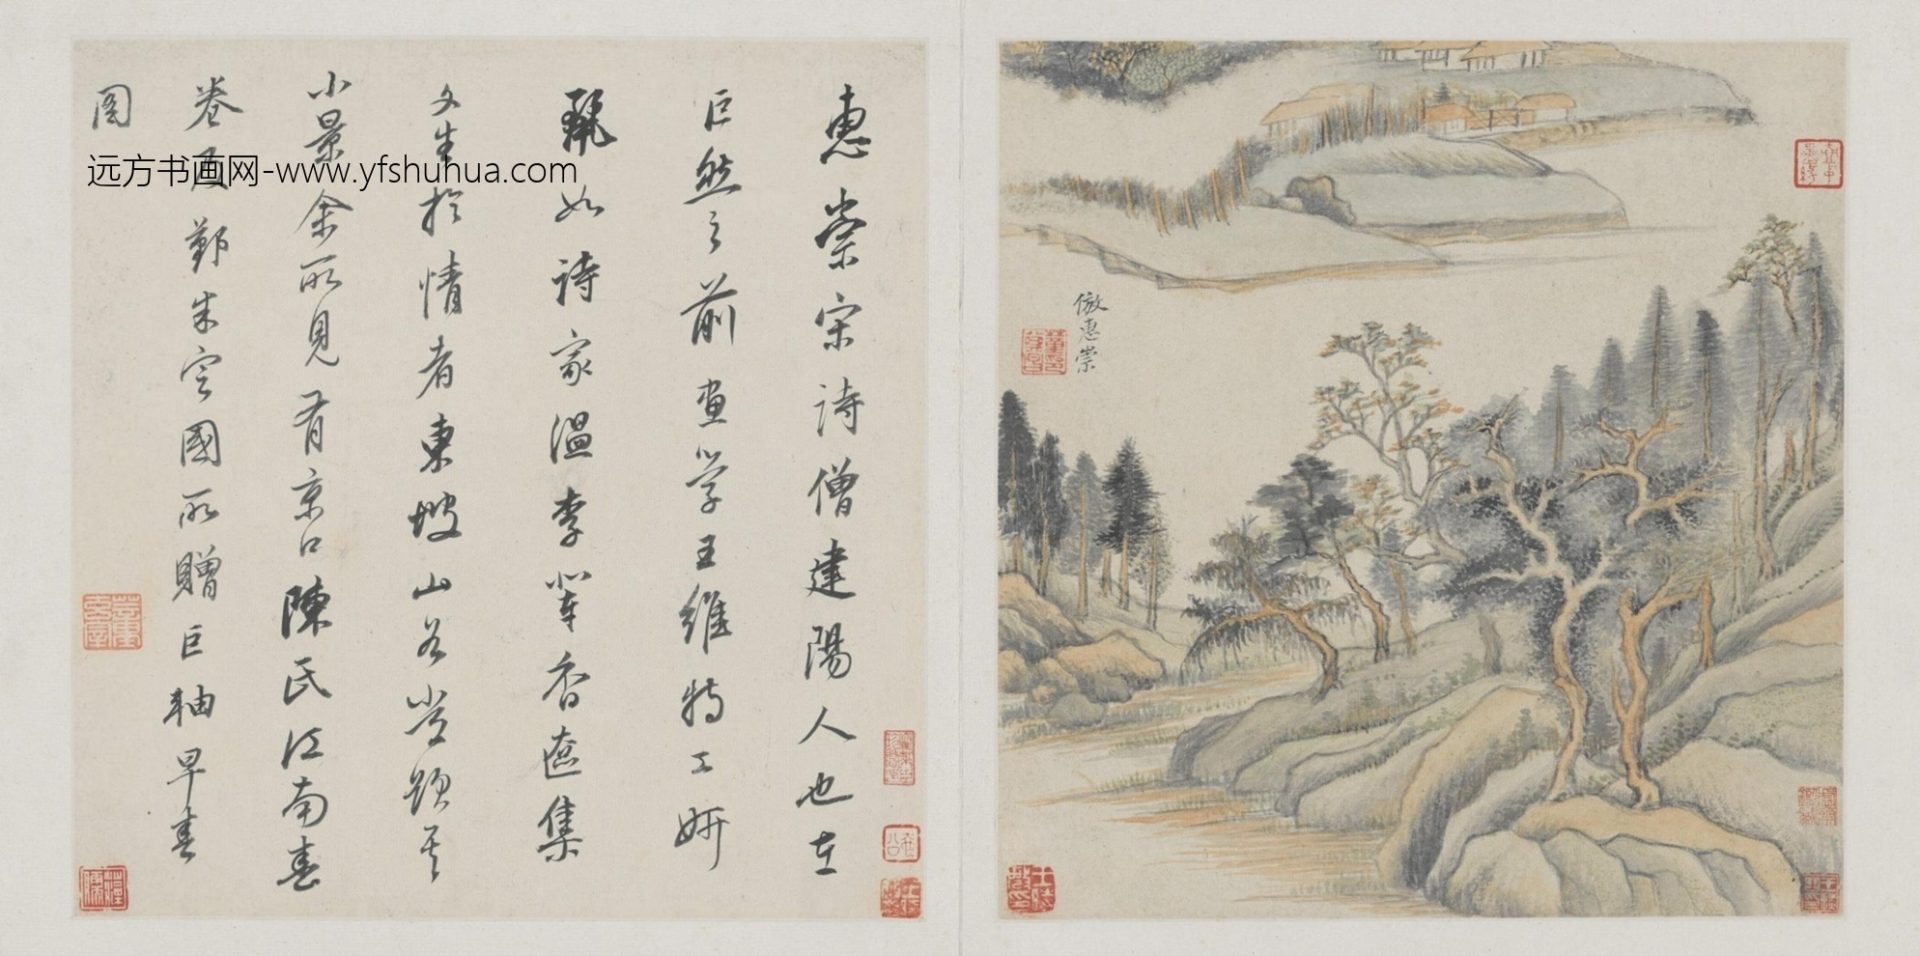 倣惠崇
惠崇宋詩僧建陽人也在
巨然之前畫學王維特工妍
麗如詩家温李輩香奩集
文生於情者東坡山谷嘗題其
小景余所見有京口陳氏江南春
卷 朱定國所贈巨軸早春
圖
远方书画网-www.yfshuhua.com